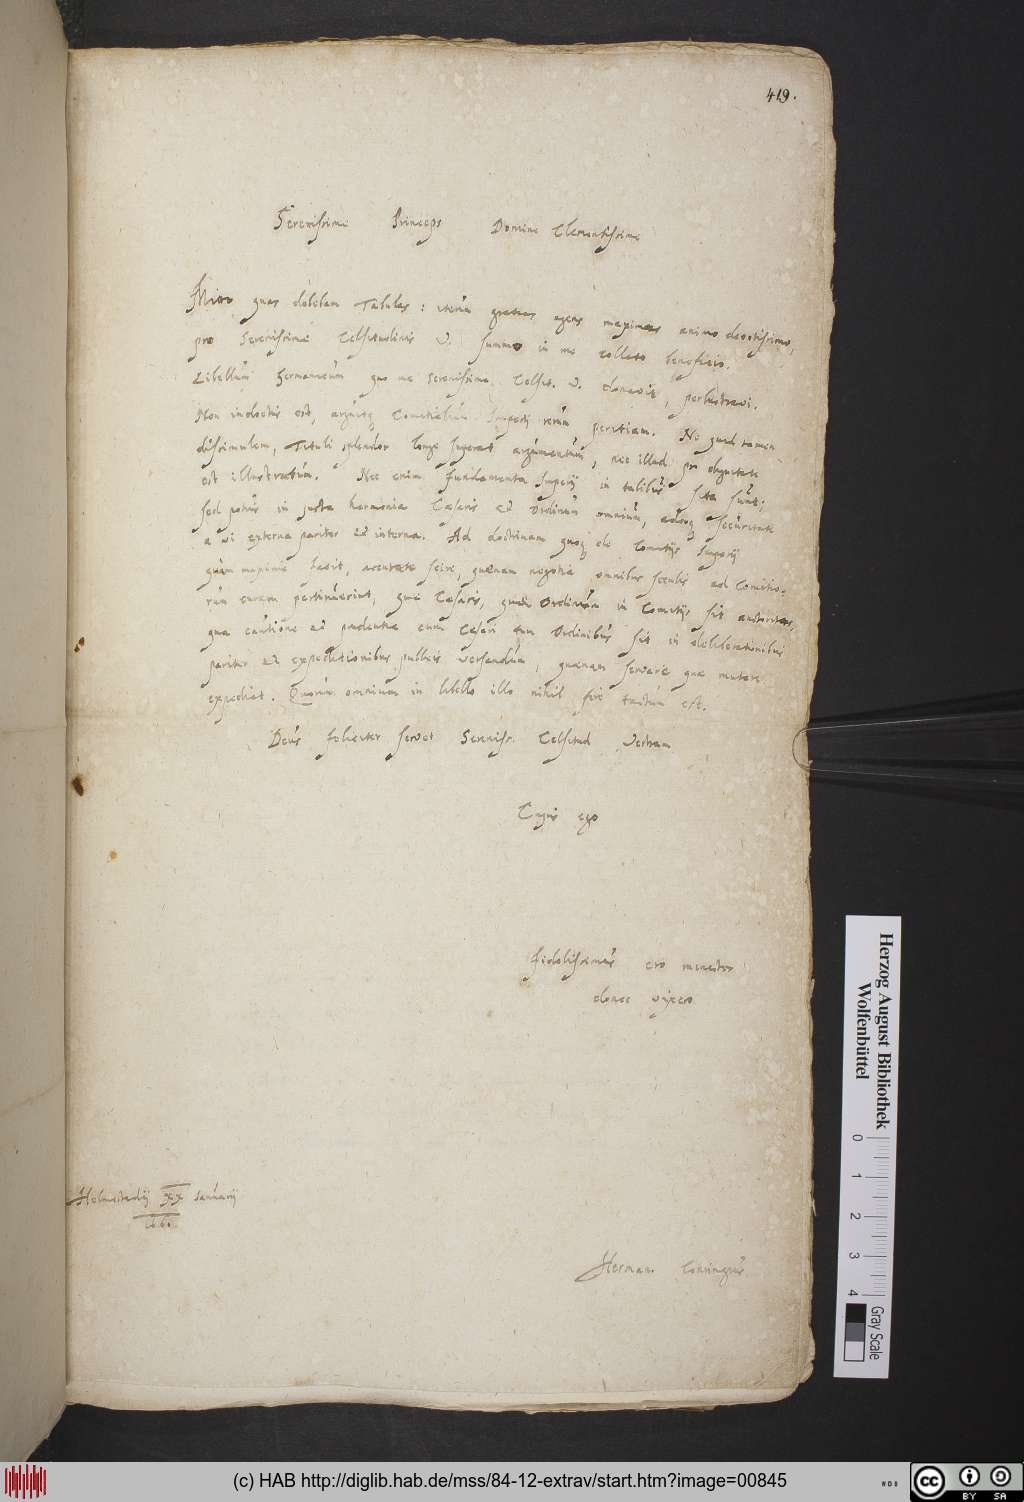 419.
Serenissime Princeps Domine Clementissime
Mitto quas debebam Tabulas: iterum gratias agens maximas animo devotissimo,
pro Serenissimae Celsitudinis V. summo in me collato beneficio.
Libellum Germanicum quo me Serenissima Celsit. V. donavit, perlustravi.
Non indoctus est, arguitq Comitialium Imperij rerum peritiam. Ne quid tamen
dissimulem, Tituli splendor longe superat argumentum, nec illud pro dignitate
est illustratum. Nec enim fundamenta Imperij in talibus sita sunt;
sed potius in justa harmonia Caesaris et Ordinum omnium, adeoq securitate
a vi externa pariter et interna. Ad doctrinam quoq de Comitijs Imperij
quam maxime facit, accurate scire, quaenam negotia omnibus seculis ad Comitio-
rum curam pertinuerint, quae Caesaris, quae Ordinum in Comitijs sit auctoritas,
qua cautione et prudentia cum Caesari tum Ordinibus sit in deliberationibus
pariter et expeditionibus publicis versandum, quaenam servare quae mutare
expediat. Quorum omnium in libello illo nihil fere tactum est.
Deus feliciter servet Sereniss. Celsitud Vestram
Cujus ego
fidelissimus ero
donec vixero
Helmestadij XX Januarij
Herman. Conringius
Herzog August Bibliothek
Wolfenbüttel
0 1 2 3 4
Gray Scale
(c) HAB http://diglib.hab.de/mss/84-12-extrav/start.htm?image=00845
cc BY SA